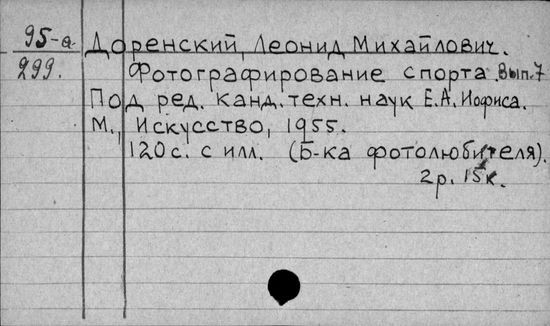 95-а
299.
Доренский, Леонид Михайлович.
Фотографирование спорта. Вып. 7
Под ред. канд. техн. наук Е.А. Иофиса.
М., Искусство, 1955.
120 с. с илл. (Б-ка фотолюбителя).
2р. 15к.